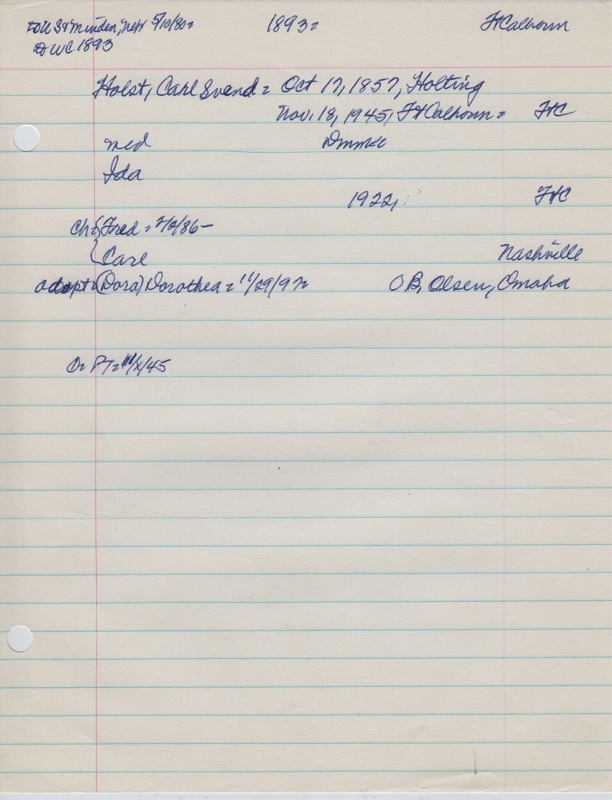 to U S & Minden, Nebr 5/10/80= 1893= Ft Calhoun
to WC 1893
Holst, Carl Svend = Oct 17, 1857, Holting
Nov. 18, 1945, Ft Calhoun = FtC
med Dmmke
Ida
1922, FtC
Ch {Fred = 2/2/86-
{Carl Nashville
adopt = (Dora) Dorothea = 11/29/97= O B, Olsen, Omaha
O= PT= 11/X/45